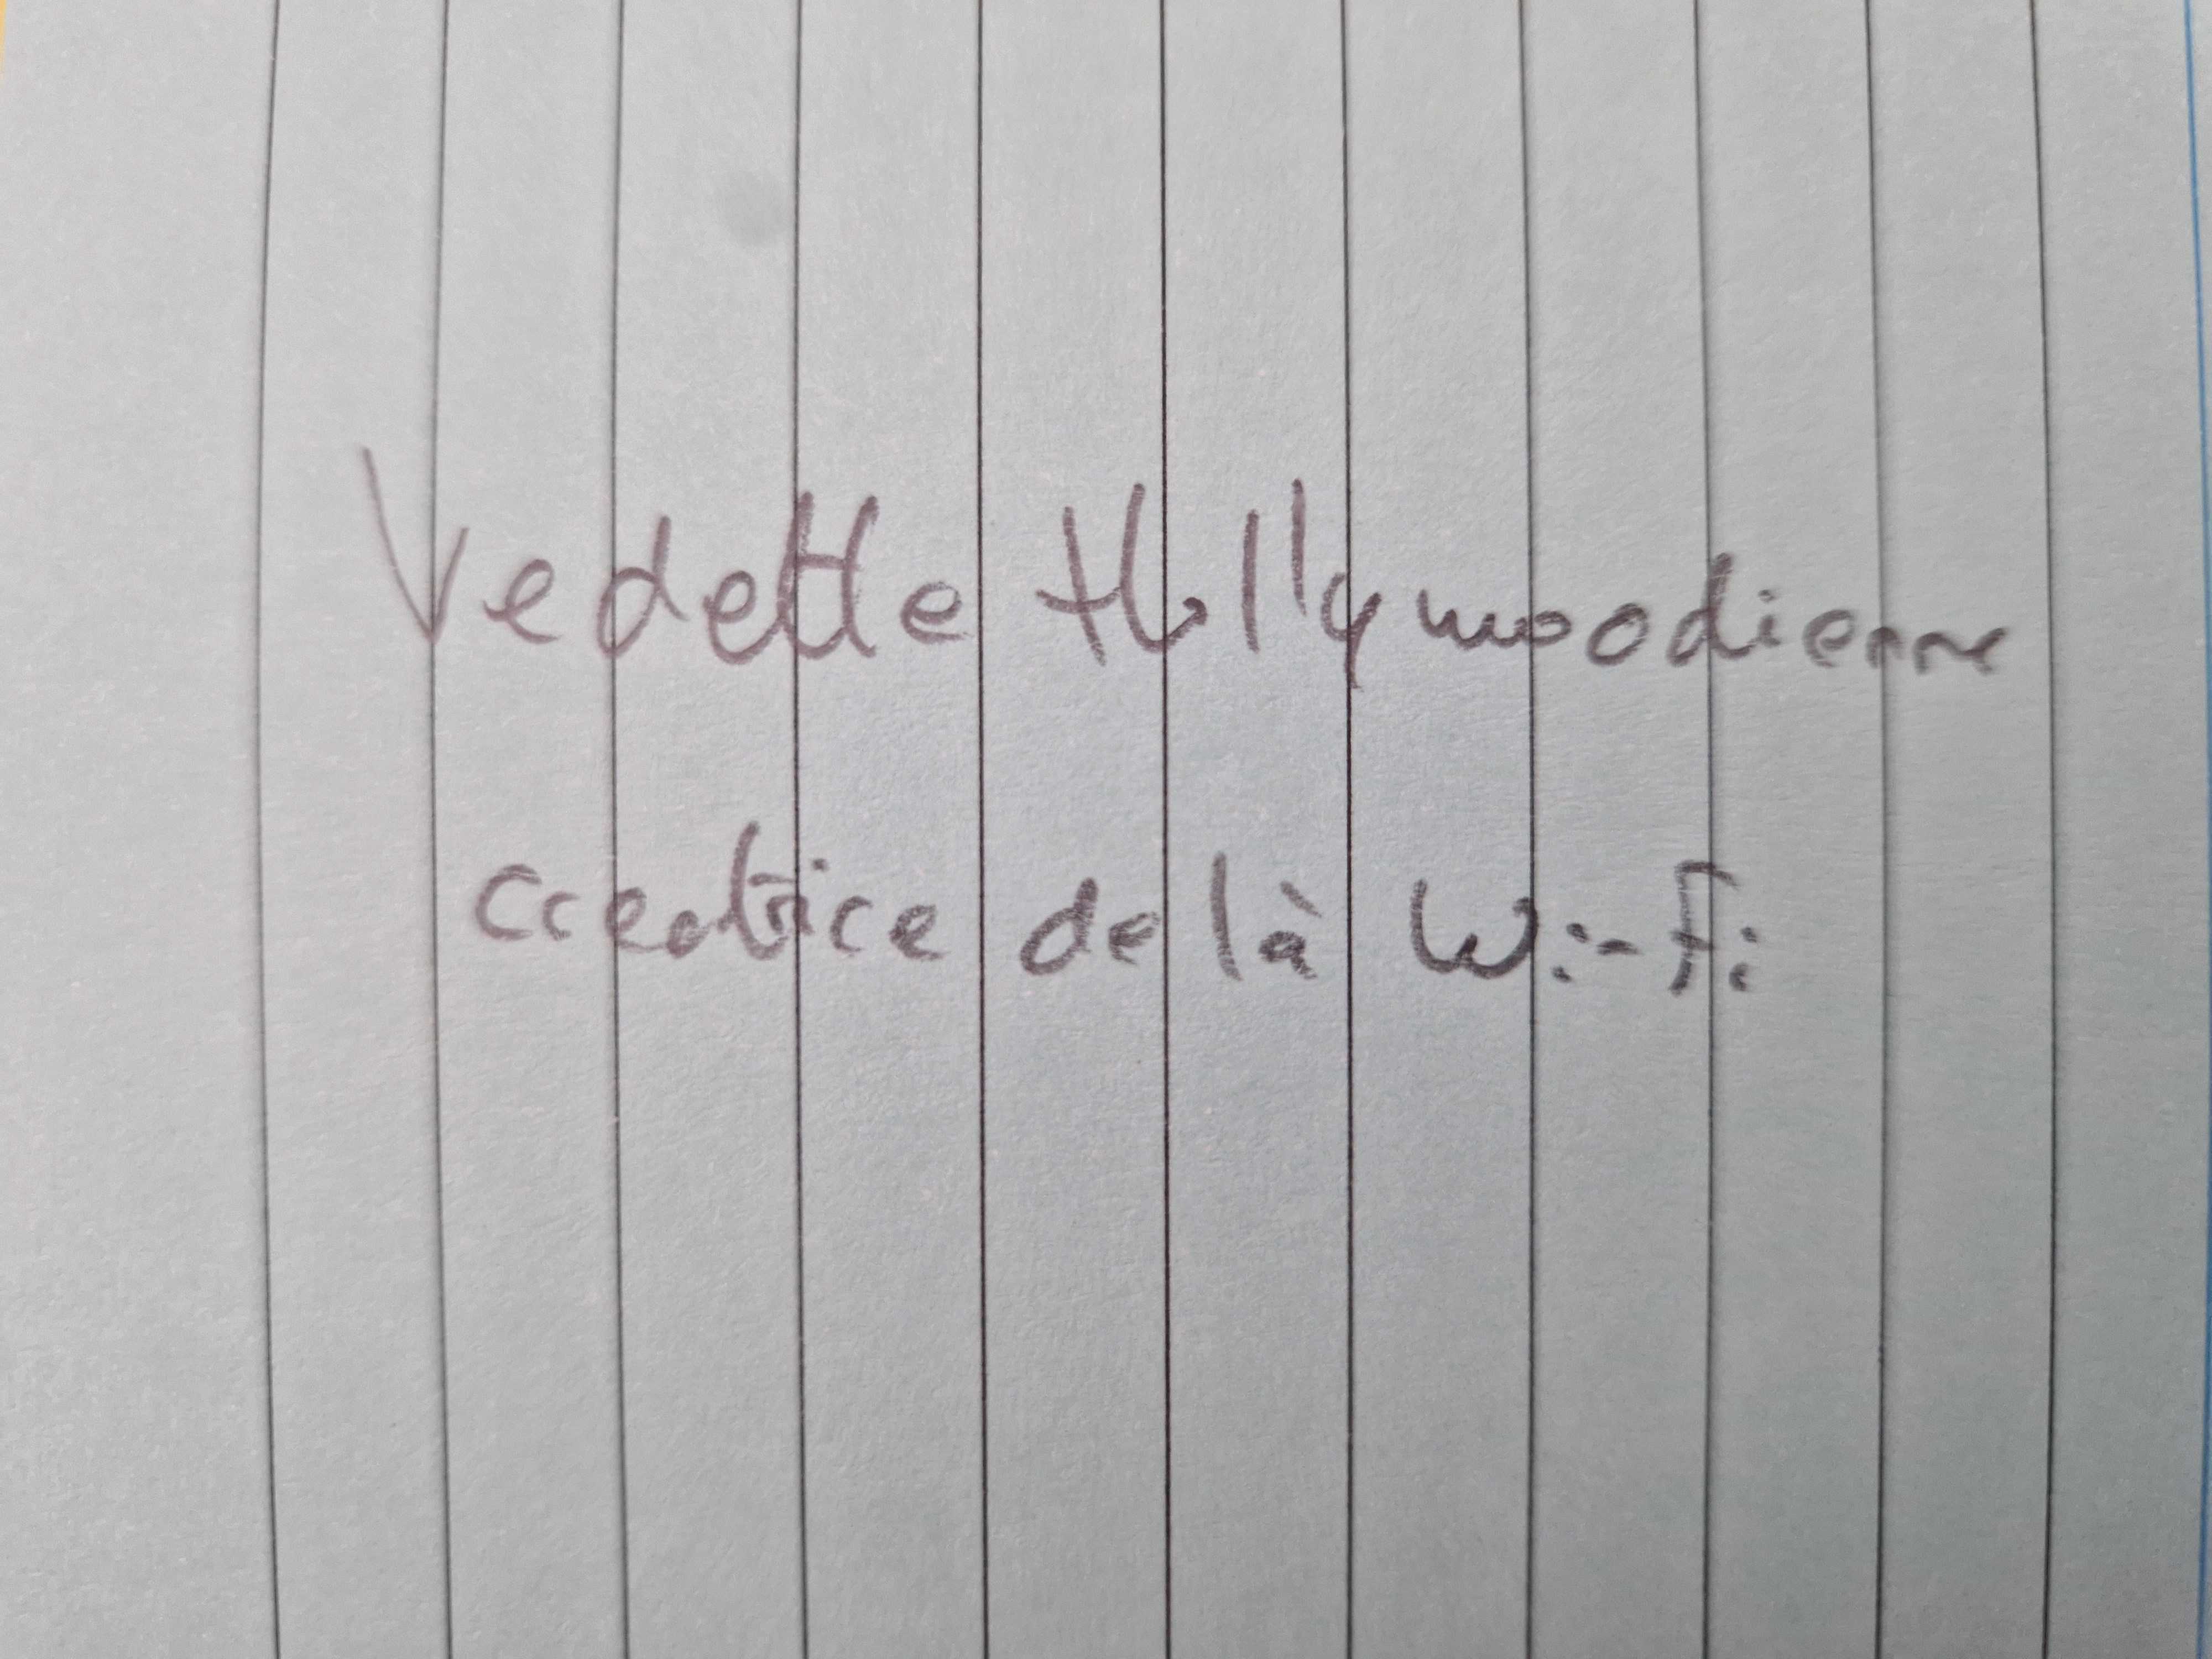 Vedette Hollywoodienne
creatrice de là Wi-Fi